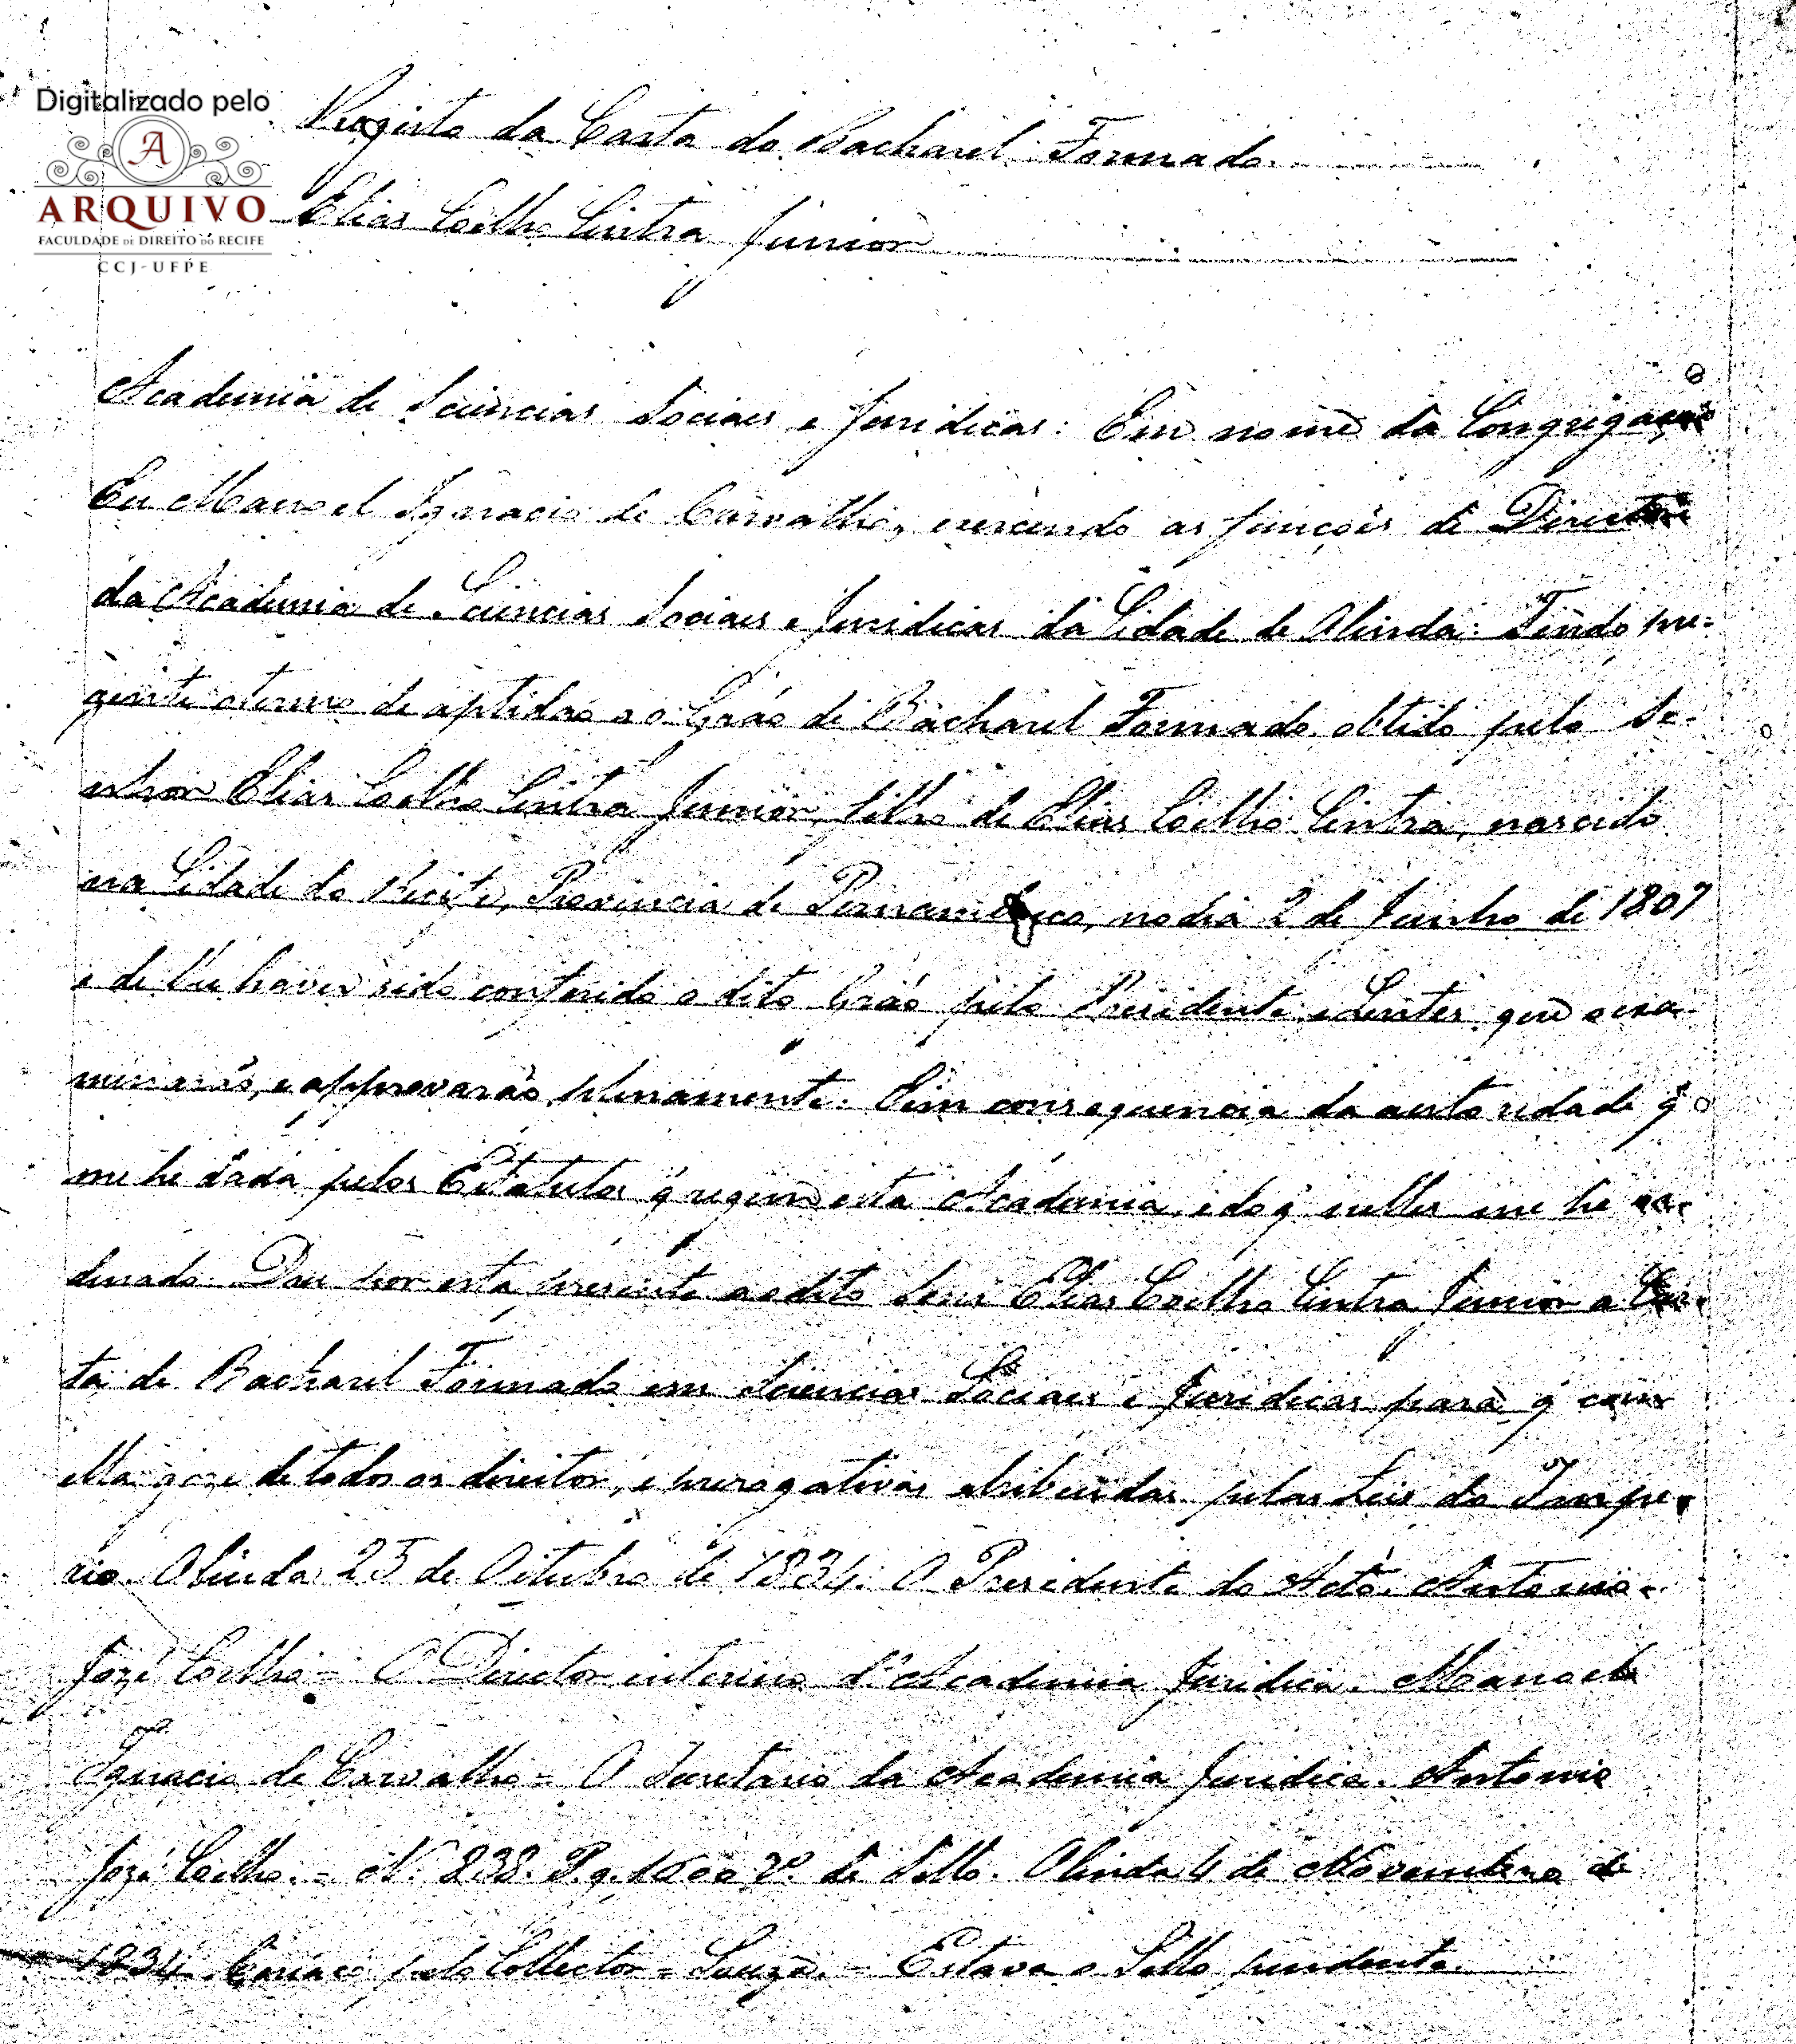 Digitalizado pelo
A
ARQUIVO
FACULDADE DE DIREITO DO RECIFE
CCJ-UFPE
Registo da Carta do Bacharel Formado
Elias Coelho Cintra Junior
Academia de Sciencias Sociaes e Juridicas: Em nome da Congregação
Eu Manoel Ignacio de Carvalho, exercendo as funcções de Director
da Academia de Sciencias Sociaes e Juridicas da Cidade de Olinda: Tendo pre-
zente o termo de aptidão ao Gráo de Bacharel Formado obtido pelo Se-
nhor Elias Coelho Cintra Junior, filho de Elias Coelho Cintra, nascido
na Cidade do Recife, Provincia de Pernambuco, no dia 2 de Junho de 1807
e de lhe haver sido conferido o dito Gráo pelo Presidente, e Lentes que o exa-
minarão, e approvarão plenamente. Em consequencia da autoridade q̃
me he dada pelos Estatutos q̃ regem esta Academia, e do q̃ nelles me he or-
denado. Dou por esta presente ao dito Senr Elias Coelho Cintra Junior a Car-
ta de Bacharel Formado em Sciencias Sociaes e Juridicas para q̃ com
ella goze de todos os direitos, e prerogativas attribuidas pelas Leis do Impe-
rio. Olinda 25 de Oitubro de 1834. O Presidente do Acto. Antonio
Jozé Coelho = O Director interino d'Academia Juridica. Manoel
Ignacio de Carvalho = O Secretario da Academia Juridica. Antonio
Jozé Coelho. = N. 238. P. g. de Sello. Olinda 4 de Novembro de
1834. pelo Collector = Souza. = Estava o Sello pendente.